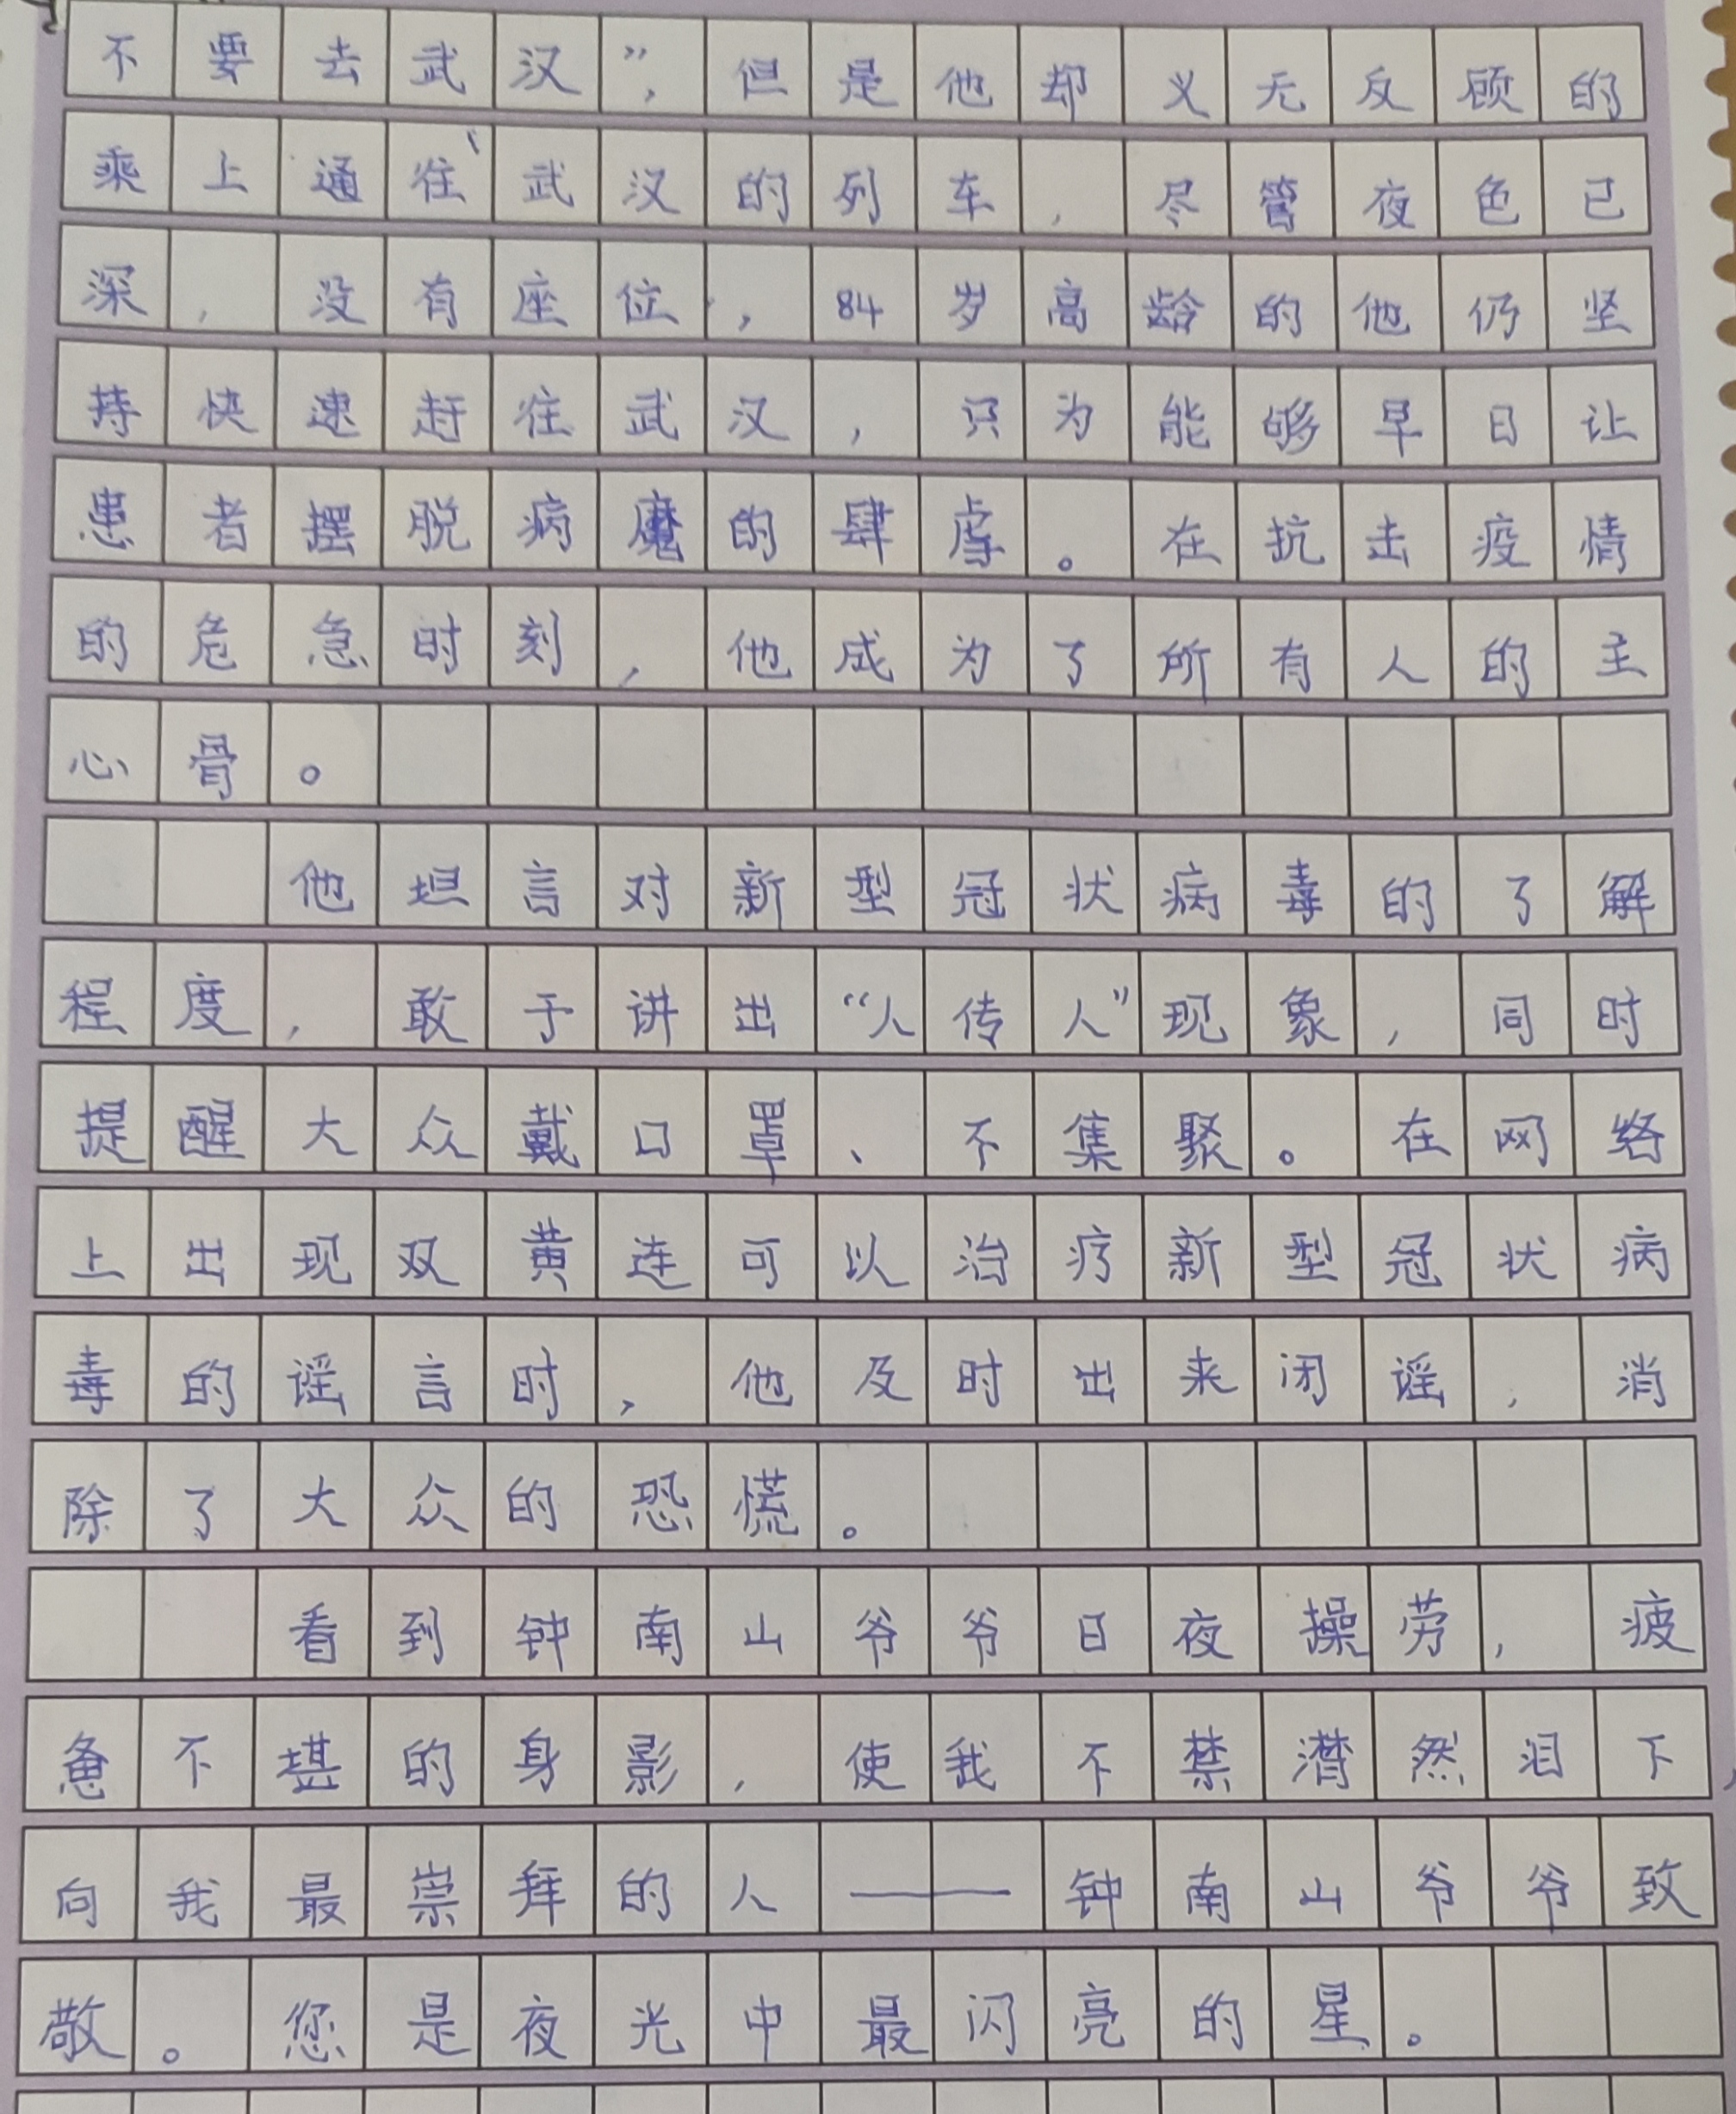 不要去武汉”，但是他却义无反顾的
乘上通往武汉的列车，尽管夜色已
深，没有座位，84岁高龄的他仍坚
持快速赶往武汉，只为能够早日让
患者摆脱病魔的肆虐。在抗击疫情
的危急时刻，他成为了所有人的主
心骨。
他坦言对新型冠状病毒的了解
程度，敢于讲出“人传人”现象，同时
提醒大众戴口罩、不集聚。在网络
上出现双黄连可以治疗新型冠状病
毒的谣言时，他及时出来闭谣，消
除了大众的恐慌。
看到钟南山爷爷日夜操劳，疲
惫不堪的身影，使我不禁潸然泪下，
向我最崇拜的人——钟南山爷爷致
敬。您是夜光中最闪亮的星。